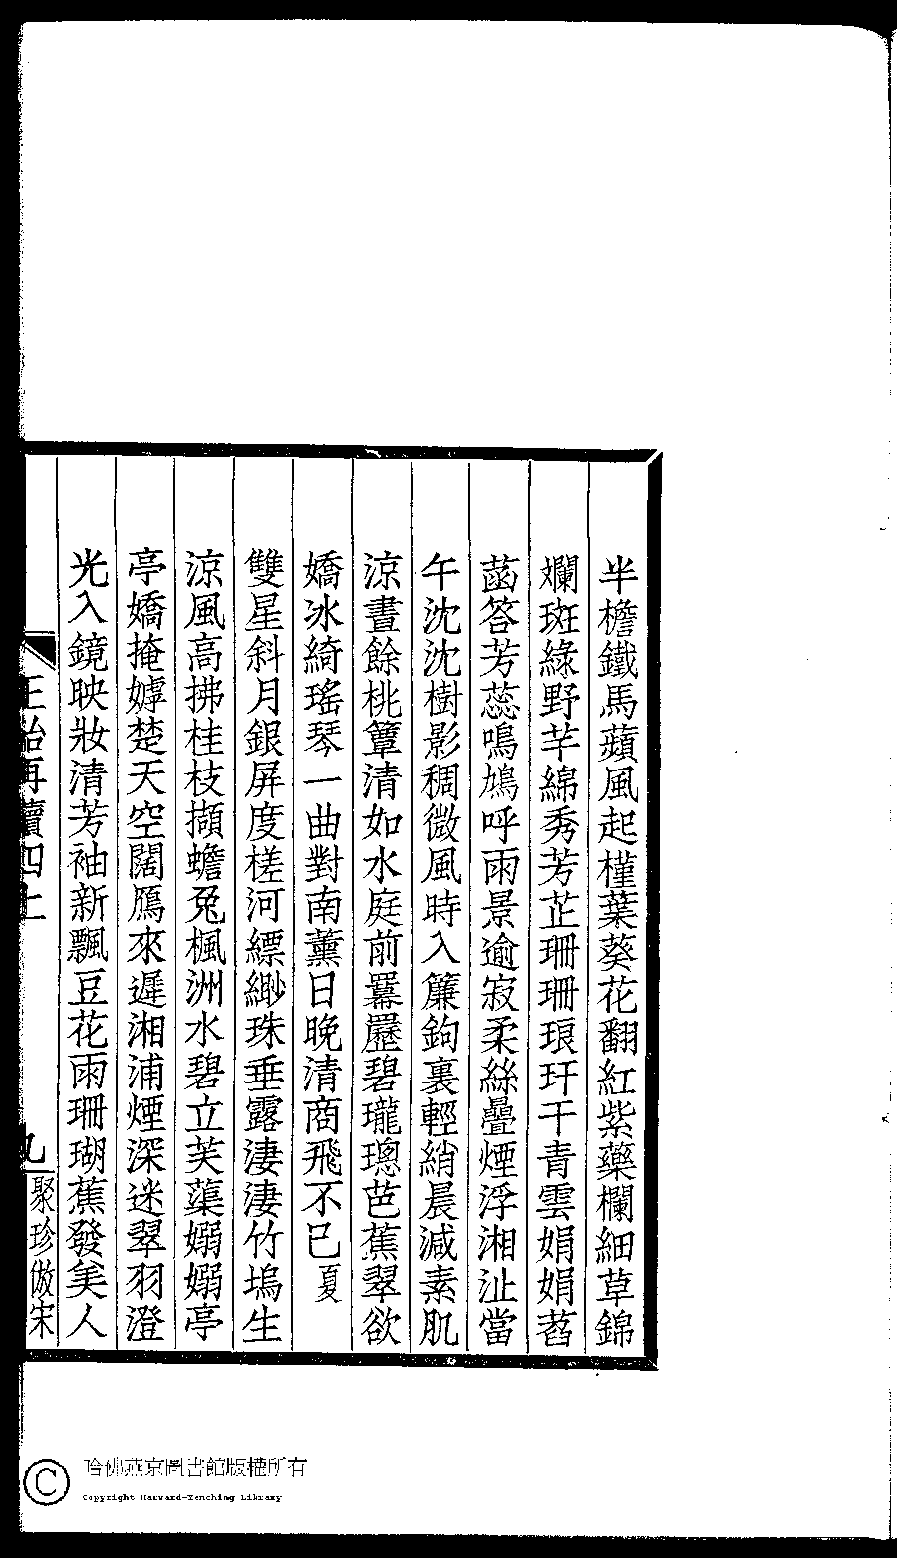 半檐鐵馬蘋風起槿葉葵花翻紅紫藥欄細草錦
斕斑綠野芊綿秀芳芷珊珊琅玕干青雲娟娟菭
菡答芳蕊鳴鳩呼雨景逾寂柔絲疊煙浮湘沚當
午沈沈樹影稠微風時入簾鉤裏輕綃晨減素肌
涼晝餘桃簟清如水庭前羃䍥碧瓏璁芭蕉翠欲
嬌冰綺瑤琴一曲對南薰日晚清商飛不已夏
雙星斜月銀屏度槎河縹緲珠垂露淒淒竹塢生
涼風高拂桂枝擷蟾兔楓洲水碧立芙蕖嫋嫋亭
亭嬌掩嫭楚天空闊鴈來遲湘浦煙深迷翠羽澄
光入鏡映妝清芳袖新飄豆花雨珊瑚蕉發美人
正始再續四上
九
聚珍倣宋
哈佛燕京圖書館版權所有
Copyright Harvard-Yenching Library